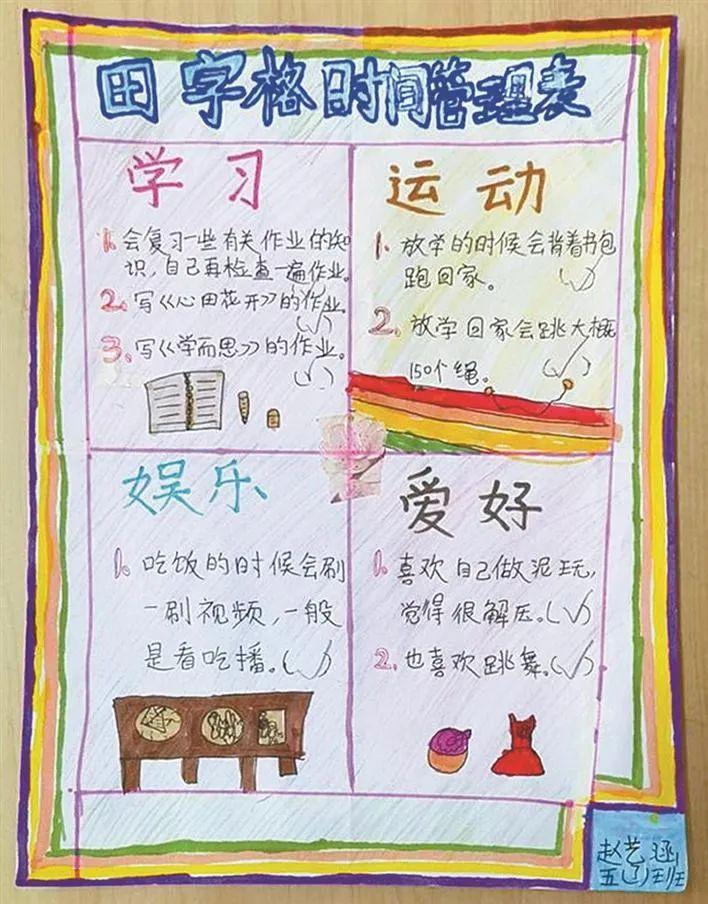 田字格时间管理表
学习
1. 会复习一些有关作业的知
识,自己再检查一遍作业。
(√)
2. 写《心田花开》的作业。
(√)
3. 写《学而思》的作业。
(√)
运动
1. 放学的时候会背着书包
跑回家。(√)
2. 放学回家会跳大概
150个绳。(√)
娱乐
1. 吃饭的时候会刷
一刷视频,一般
是看吃播。(√)
爱好
1. 喜欢自己做泥玩,
觉得很解压。(√)
2. 也喜欢跳舞。(√)
赵艺涵
五(1)班